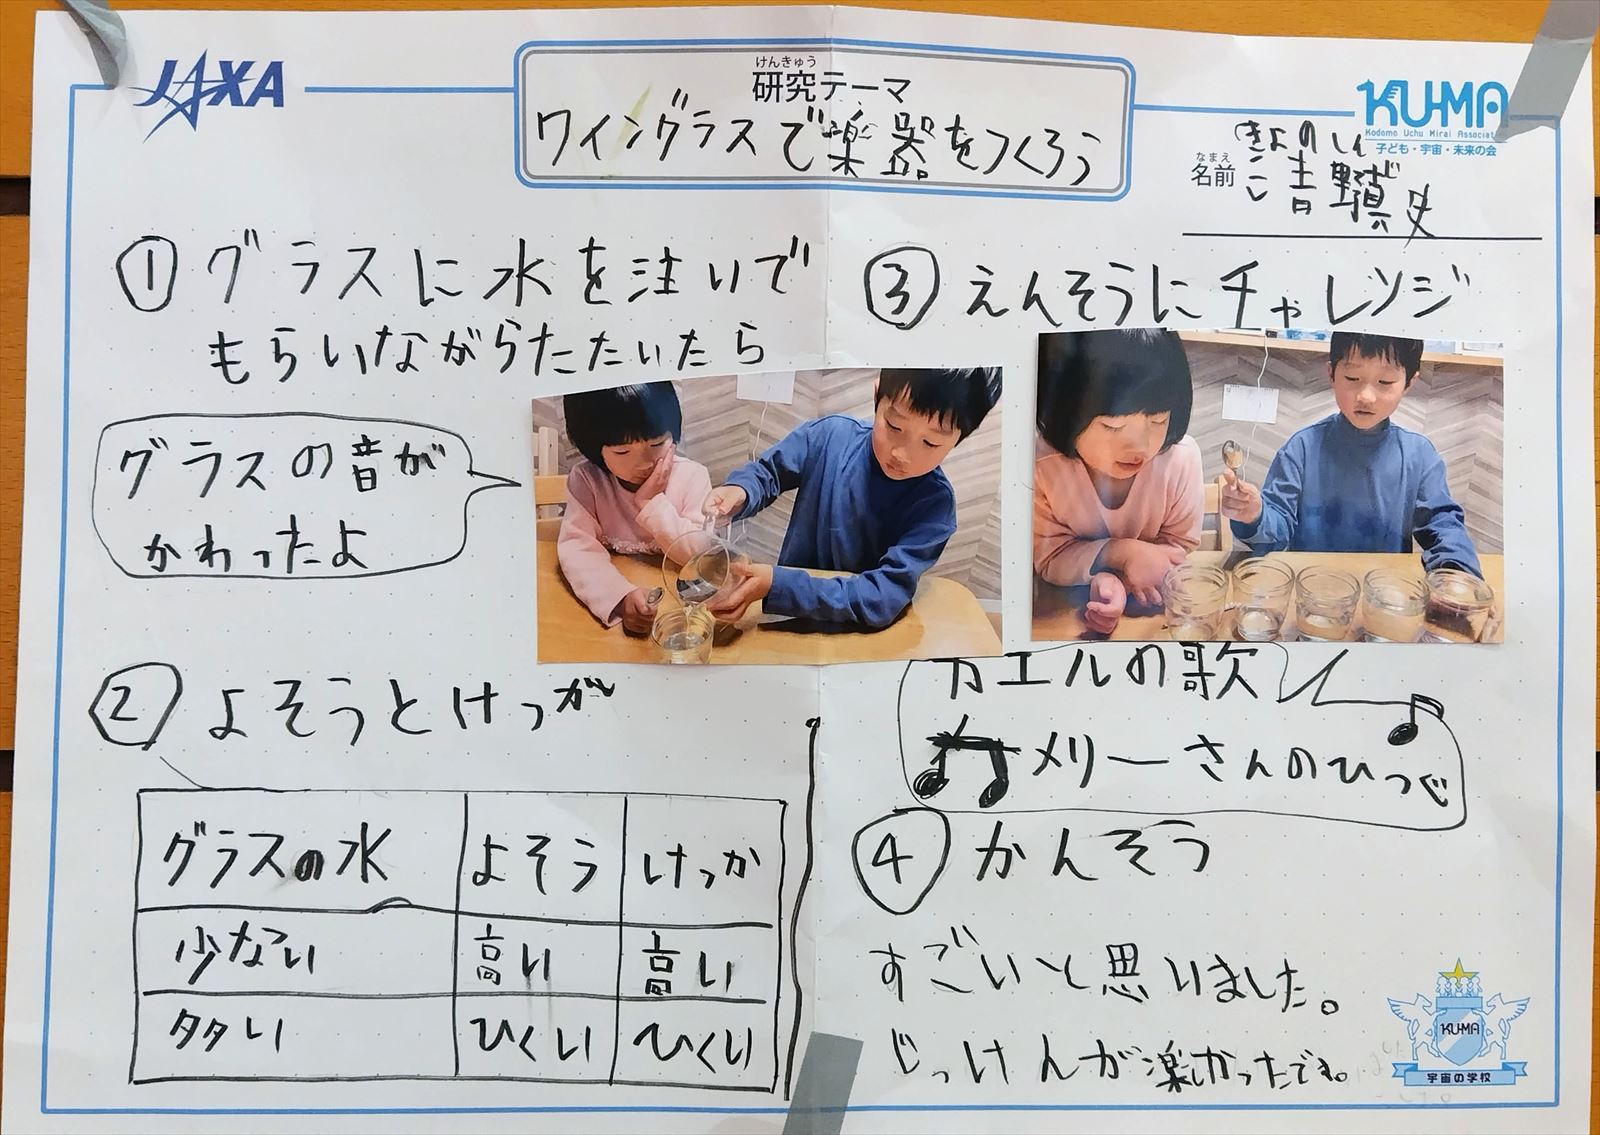 JAXA
けんきゅう
研究テーマ
ワイングラスで楽器をつくろう
KU-MA
Kodomo Uchu Mirai Association
子ども・宇宙・未来の会
なまえ
名前
① グラスに水を注いで
もらいながらたたいたら
グラスの音が
かわったよ
② よそうとけっか
グラスの水 よそう けっか
少ない 高い 高い
多い ひくい ひくい
③ えんそうにチャレンジ
カエルの歌
メリーさんのひつじ
④ かんそう
すごいと思いました。
じっけんが楽しかったです。
KU-MA
宇宙の学校